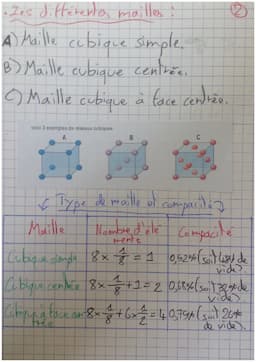 . Les différentes mailles : ②
A) Maille cubique simple.
B) Maille cubique centrée.
C) Maille cubique à face centrée.
A B C
Type de maille et compacité
Maille Nombre d'élé
ments Compacité
Cubique simple 8 × 1/8 = 1 0,52% (soit 48% de
vide)
Cubique centrée 8 × 1/8 + 1 = 2 0,68% (soit 32% de
vide)
Cubique à face cen
trée 8 × 1/8 + 6 × 1/2 = 4 0,75% (soit 26%
de vide)